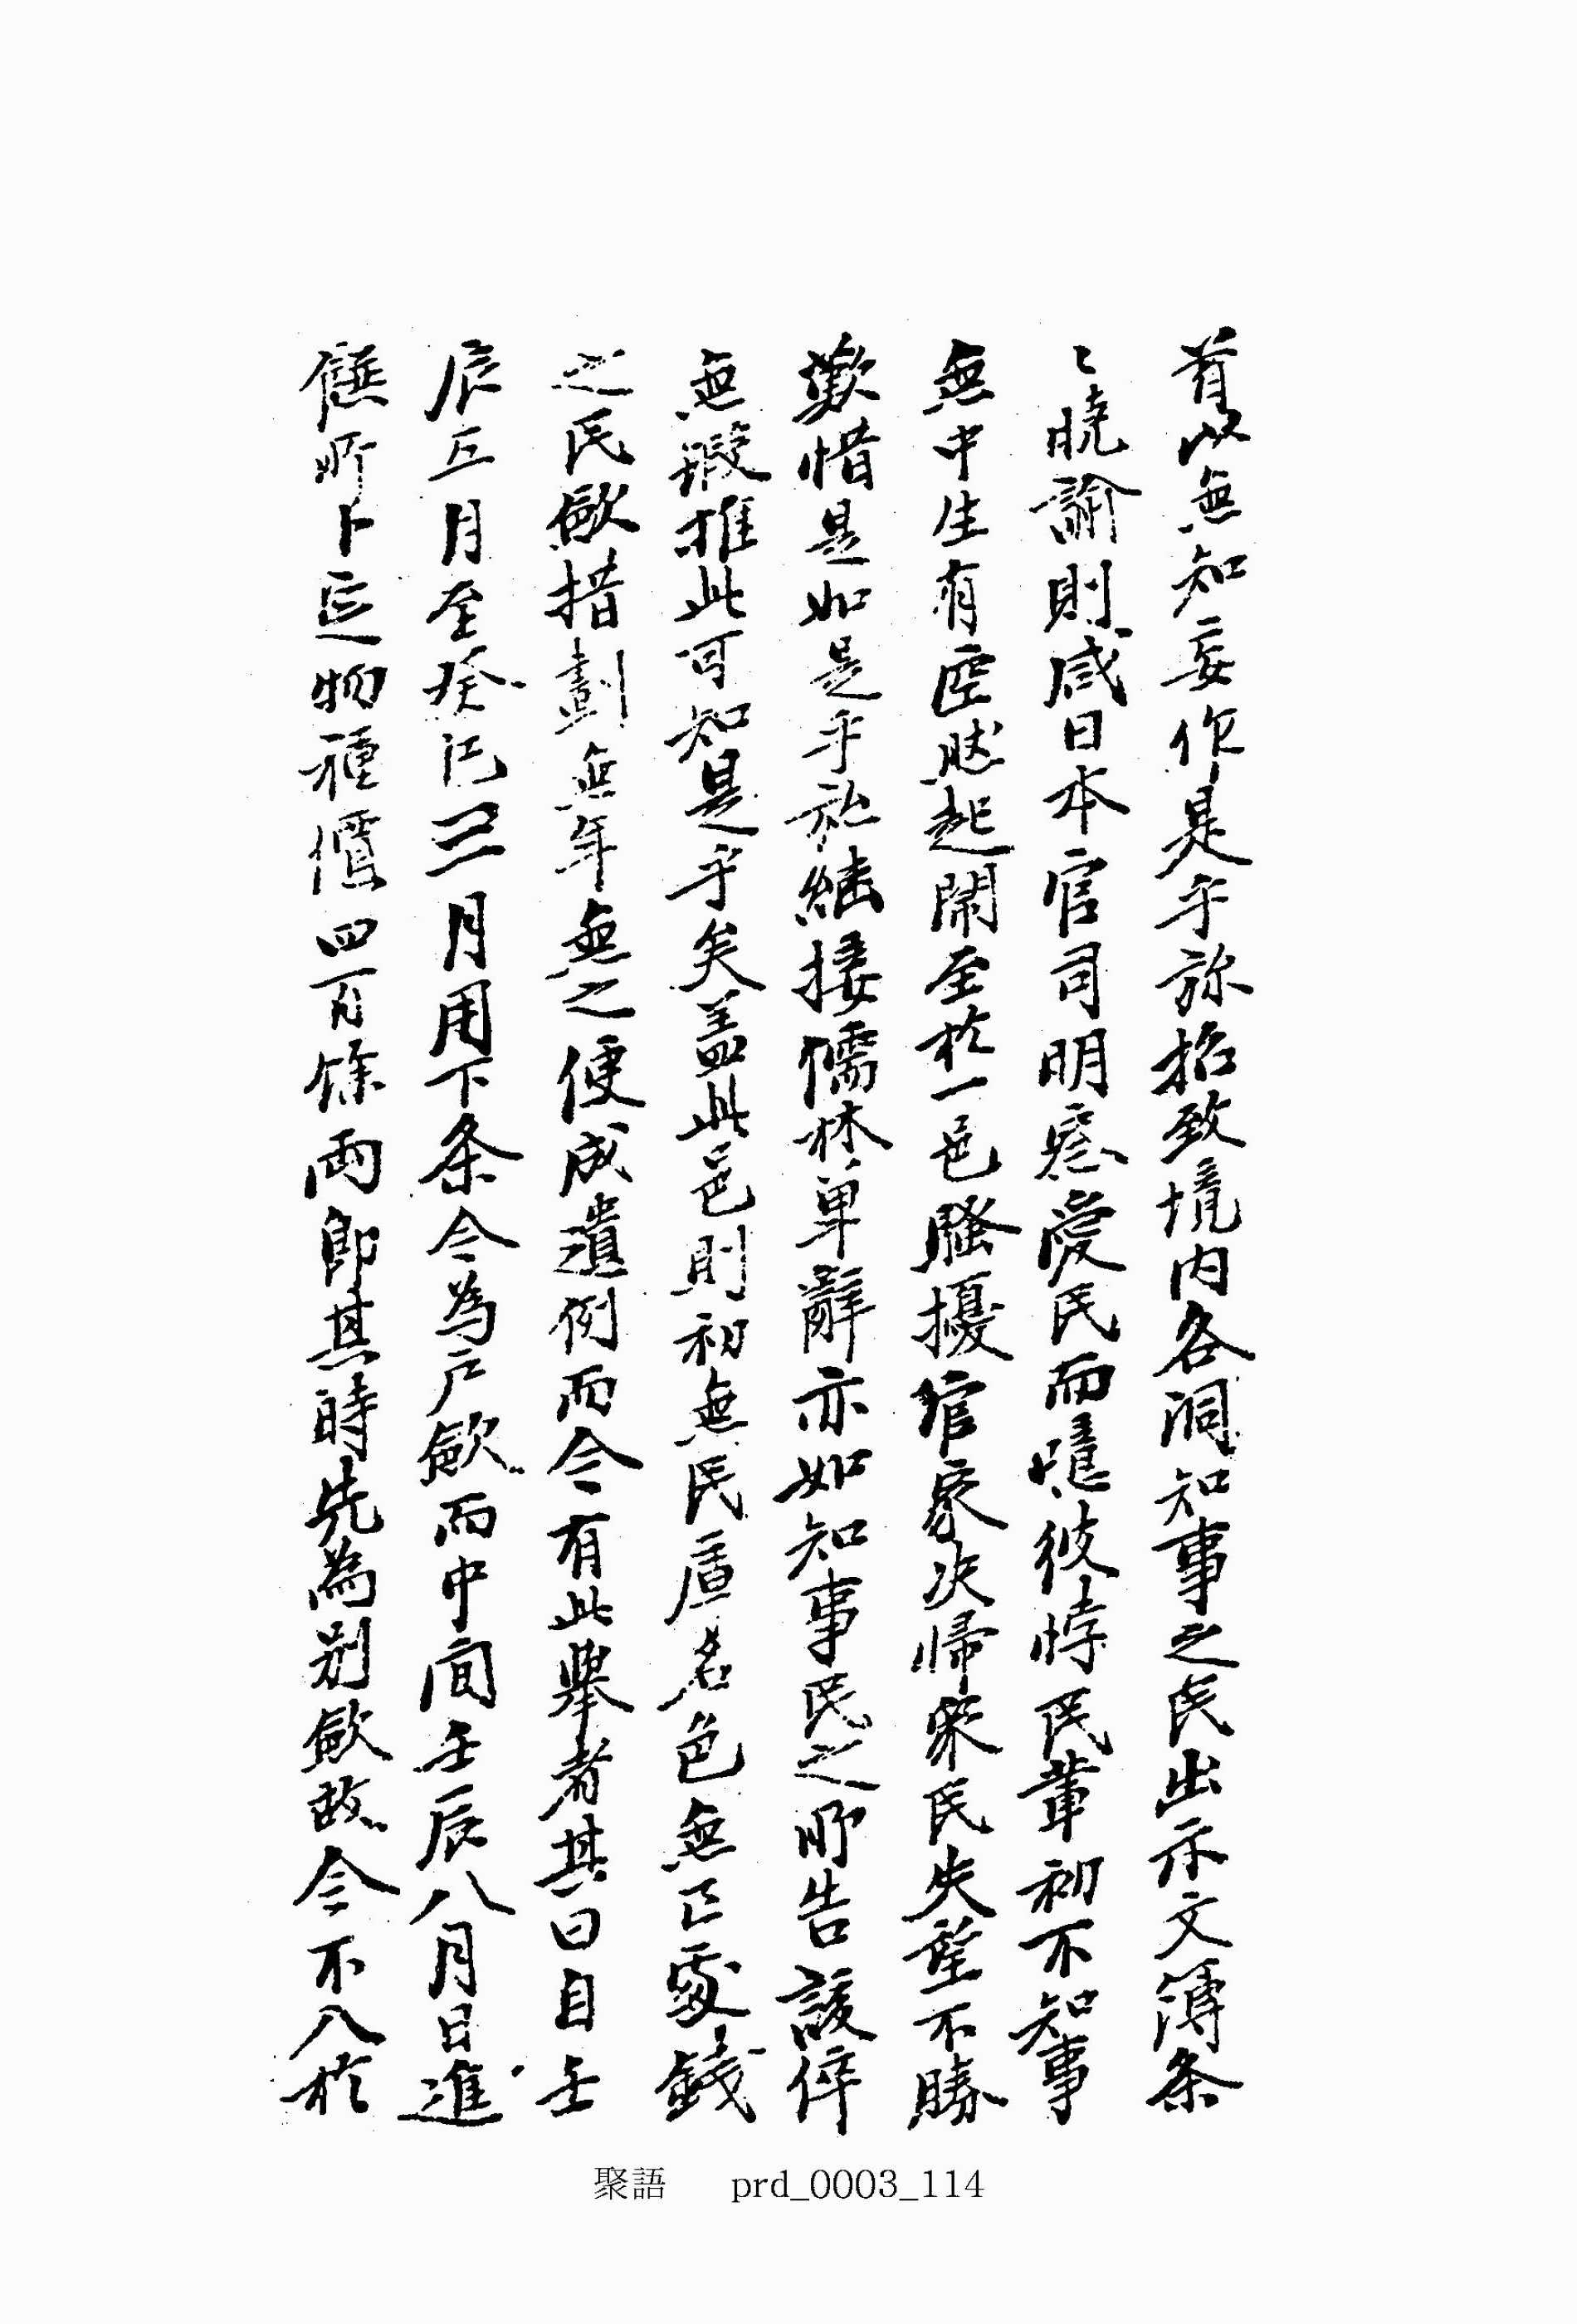 首以無知妄作是乎弥招致境内各洞知事之民出示文簿条
〻曉諭則咸曰本官司明恕愛民而噫彼悖民輩初不知事
無中生有空然起閙至於一邑騷擾官家決歸衆民失望不勝
歎惜是如是乎旀継接儒林單辭亦如知事民之所告該倅
無瑕推此可知是乎矣盖此邑則初無民庫名色無正處錢
之民歛措劃無年無之便成遺例而今有此擧者其曰自壬
辰五月至癸巳三月用下条今為戶歛而中間壬辰八月日進
饌所卜定物種價四百餘両即其時先為別歛故今不入於
聚語 prd_0003_114